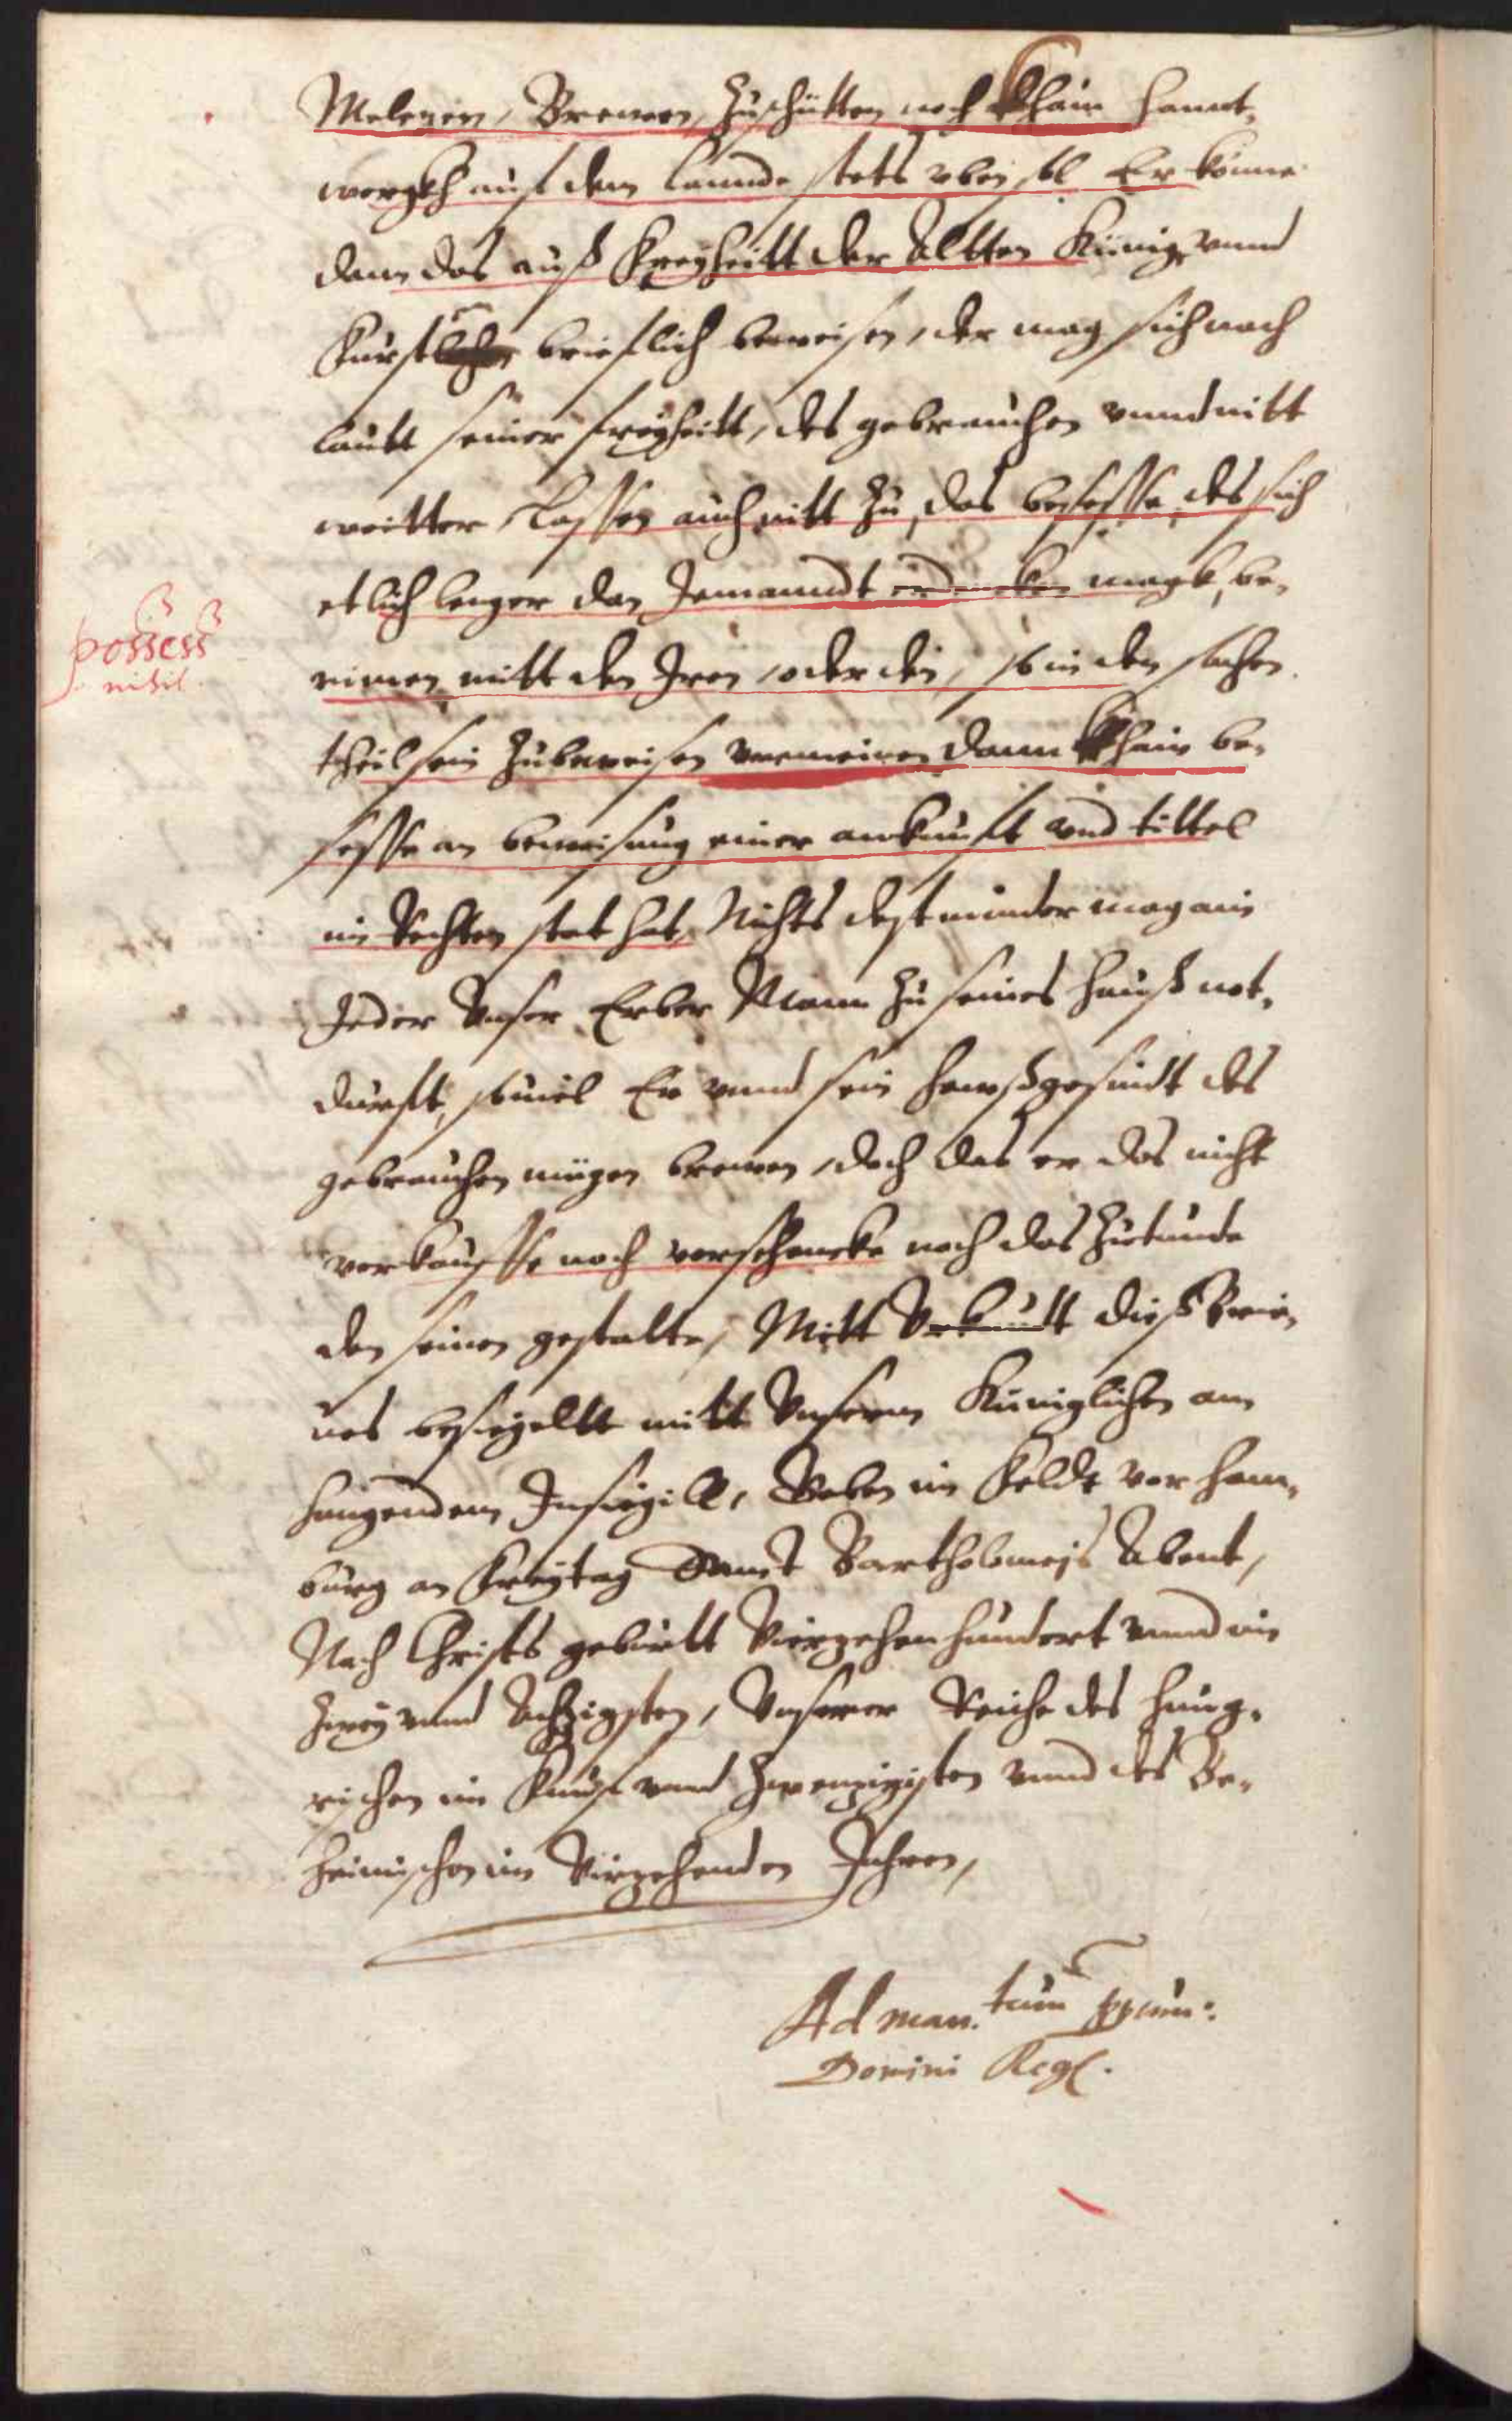 Meletzen, Brewen, Zuschütten noch khain hannt,
wergkh auf dem lannde stets vben sol Er könne
dann das auß Freyheitt der Altten König, vnnd
Fürsten brieflich beweisen, der mag sich nach
lautt seiner freyheitt, des gebrauchen vnnd nitt
weitter, Lassen auch nitt zu, das besesse, des sich
etlich lenger dan Jemanndt magk, be,
rimen mitt den Iren, oder den, so in den sachen
theil sein zubeweisen vermeinen dann khain be,
sesse an beweisung einer ankunfft vnd tittel
im Rechten stat hat, Nichts dest minder mag ain
Jeder Vnser Erber Mann zu seines hauß not,
durfft, souiel Er vnnd sein haußgesindt des
gebrauchen mügen brewen, doch das er das nicht
verkauffe noch verschencke noch das zutunde
den seinen gestatte, Mitt dieß brie,
ues besigellt mitt Vnserm Küniglichen an
hangendem Insigill, Geben im Felde vor ham,
burg an Freytag Sannt Bartholomejs Abent,
Nach Christs geburtt Vierzehenhundert vnnd im
Zwey vnnd Achzigsten, Vnserer Reiche des hung,
rischen im Funf vnnd Zwenzigisten vnnd des Be,
heimischen im Virzehenden Jahren,
possess
nihil
Ad man.tum ppium:
Domini Regl.